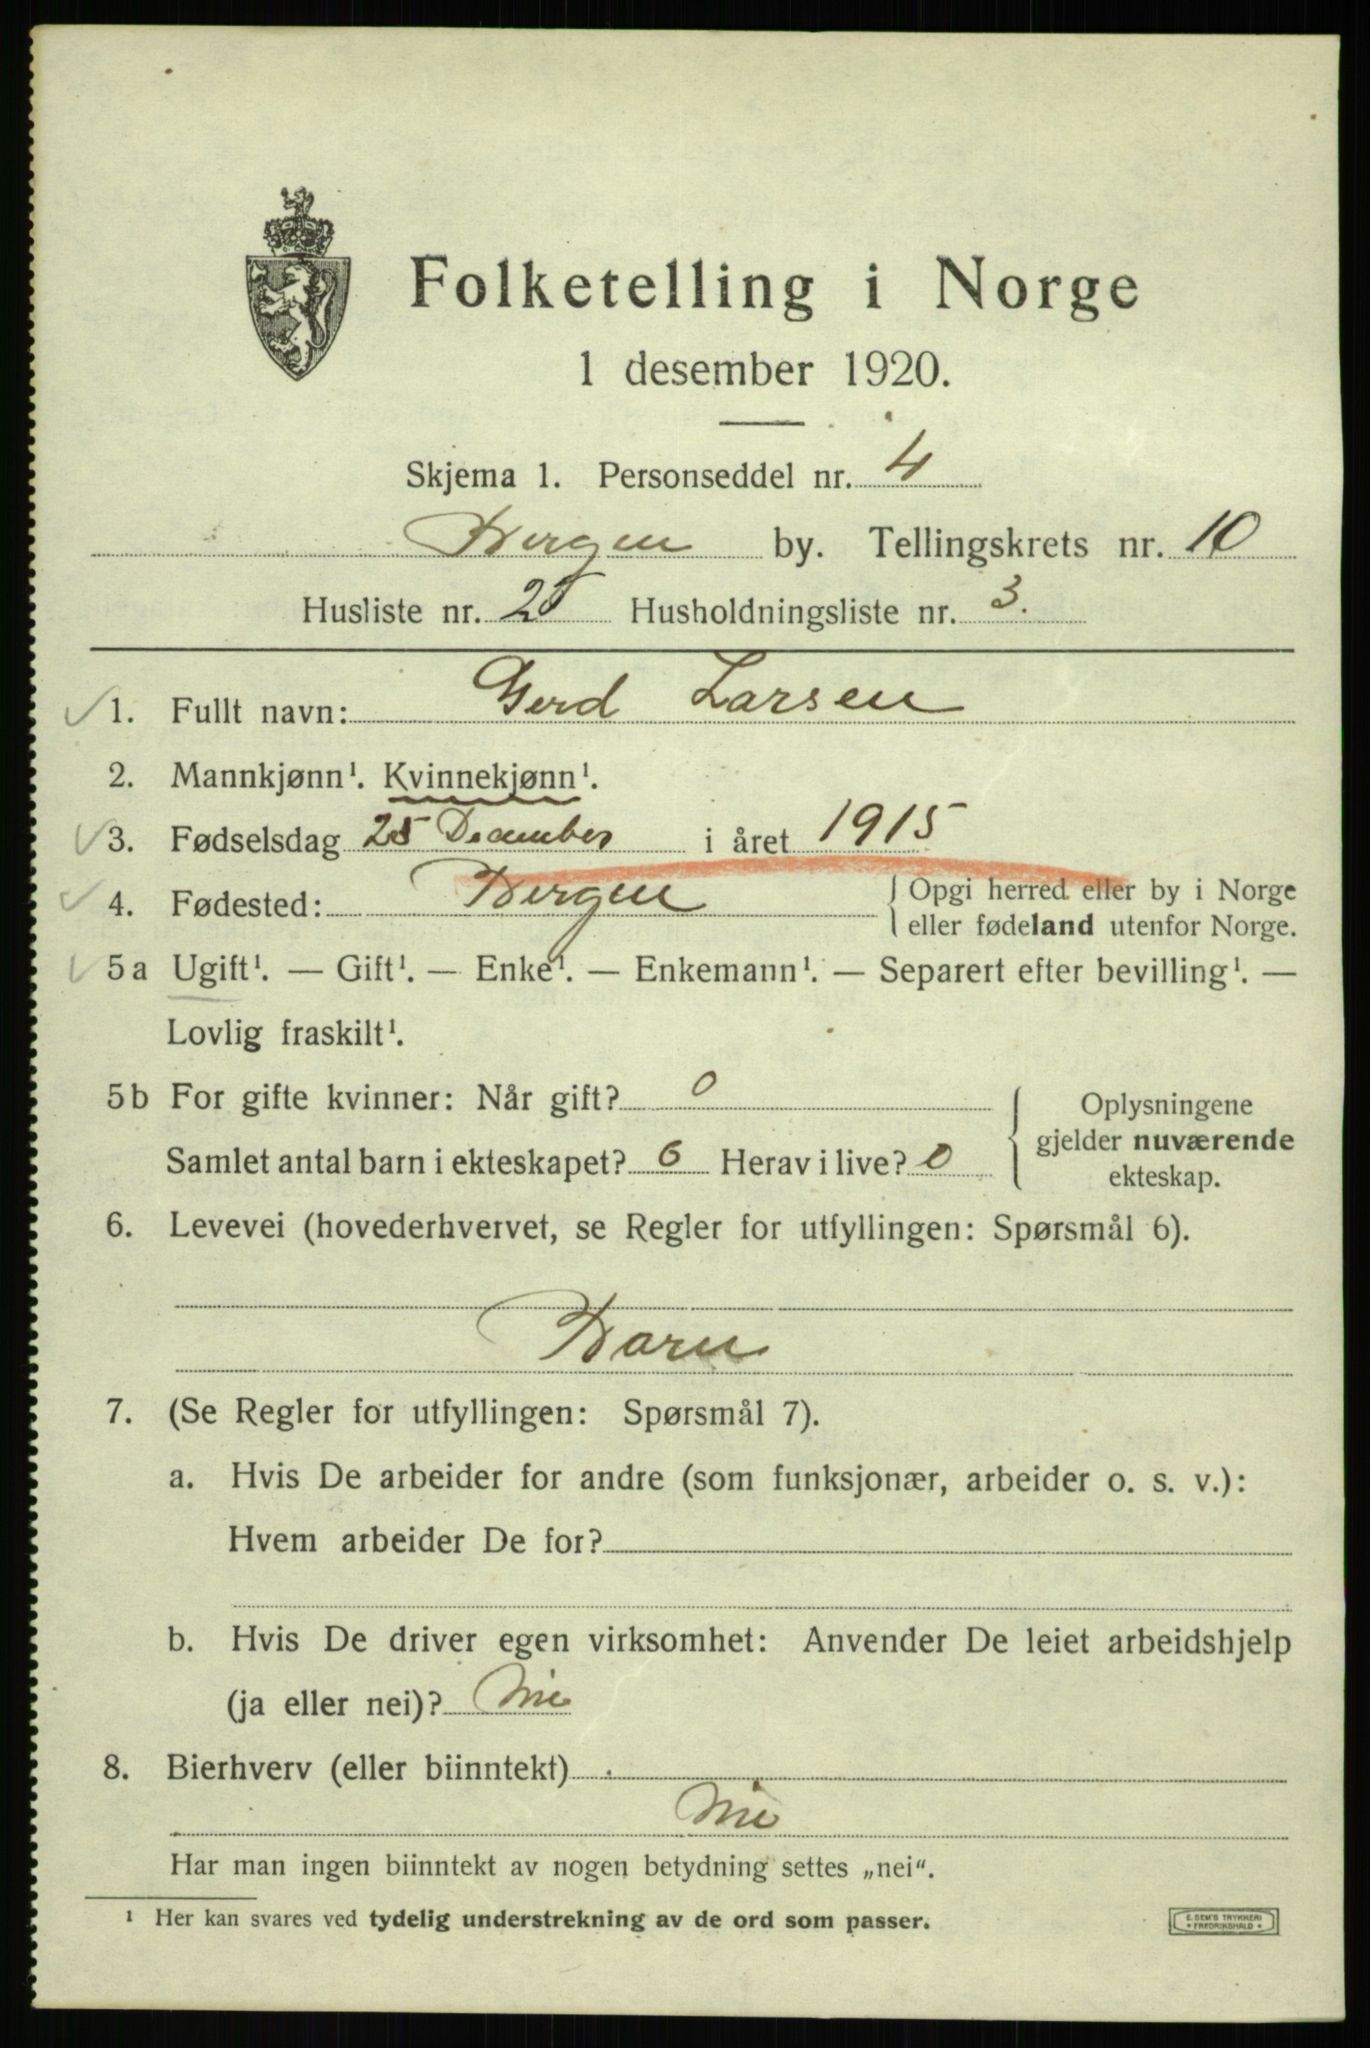 Folketelling i Norge
1 desember 1920.
Skjema 1. Personseddel nr. 4
Bergen by. Tellingskrets nr. 10
Husliste nr. 25 Husholdningsliste nr. 3.
1. Fullt navn: Gerd Larsen
2. Mannkjønn¹. Kvinnekjønn¹.
3. Fødselsdag 25 December i året 1915
4. Fødested: Bergen { Opgi herred eller by i Norge
eller fødeland utenfor Norge.
5a Ugift¹. — Gift¹. — Enke¹. — Enkemann¹. — Separert efter bevilling¹. —
Lovlig fraskilt¹.
5b For gifte kvinner: Når gift? 0
Samlet antal barn i ekteskapet? 0 Herav i live? 0
Oplysningene
gjelder nuværende
ekteskap.
6. Levevei (hovederhvervet, se Regler for utfyllingen: Spørsmål 6).
Barn
7. (Se Regler for utfyllingen: Spørsmål 7).
a. Hvis De arbeider for andre (som funksjonær, arbeider o. s. v.):
Hvem arbeider De for?
b. Hvis De driver egen virksomhet: Anvender De leiet arbeidshjelp
(ja eller nei)? Nei
8. Bierhverv (eller biinntekt)
Nei
Har man ingen biinntekt av nogen betydning settes „nei“.
¹ Her kan svares ved tydelig understrekning av de ord som passer.
E. SEM'S TRYKKERI
* FREDRIKSHALD *